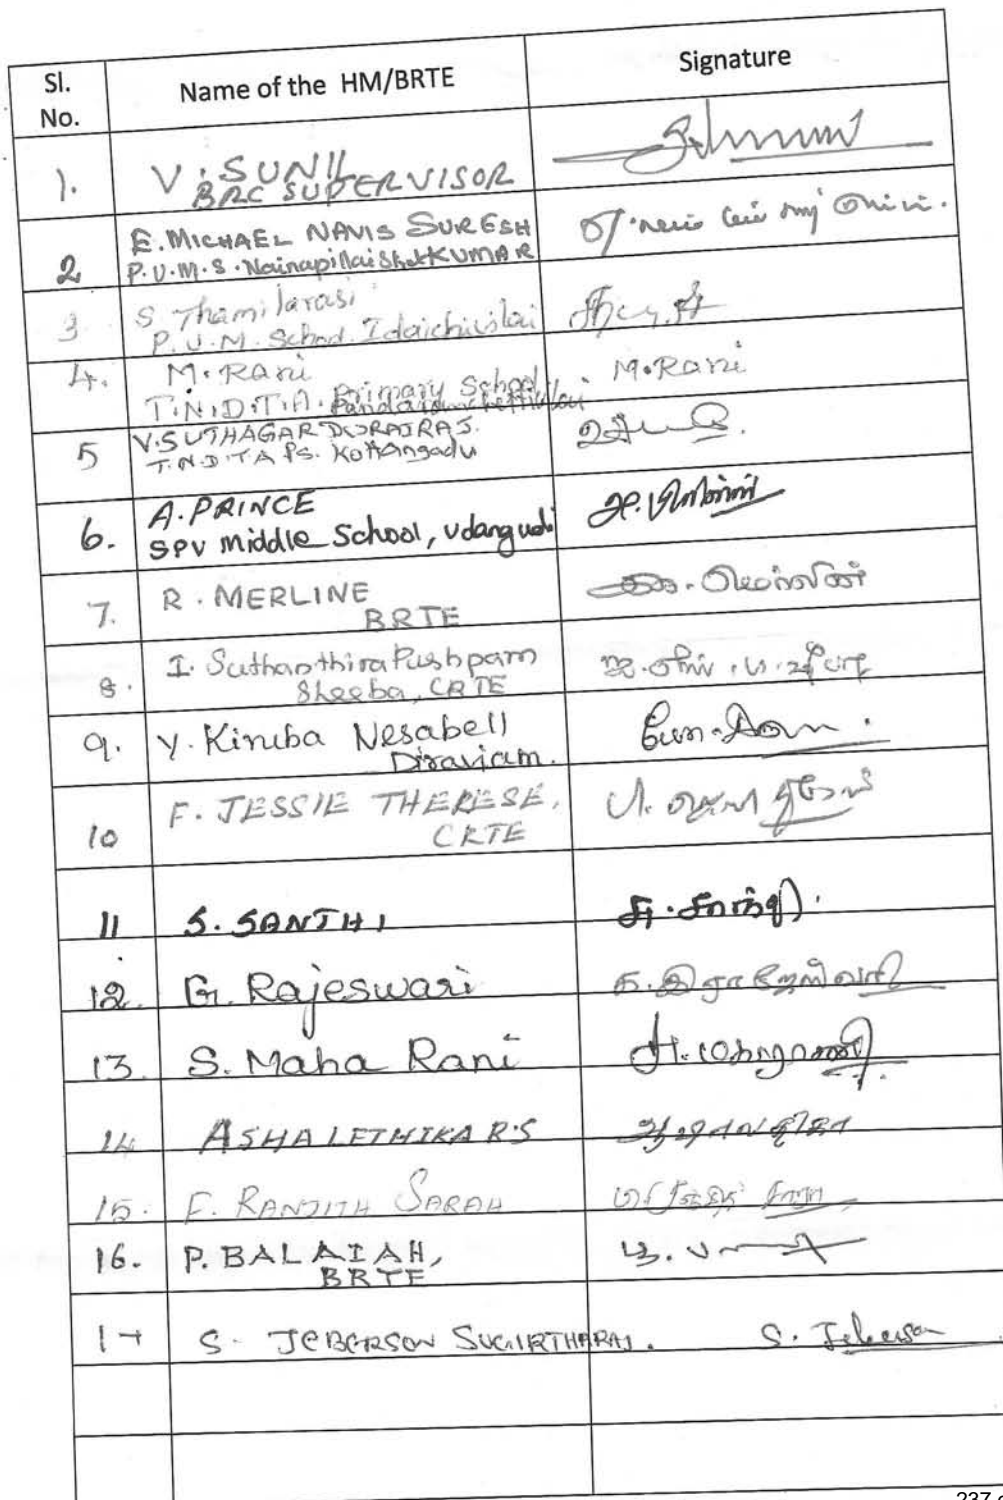 Sl. No.
Name of the HM/BRTE
Signature
1.
V. SUNIL
BRC SUPERVISOR
2
E. MICHAEL NAVIS SURESH
P.U.M.S. KUMAR
3
S. Thamilarasi
P.U.M. School. Idaichivilai
4.
M. Rani
T.N.D.T.A. Primary School,
M. Rani
5
V. SUTHAGAR DURAIRAJ.
T.N.D.T.A PS. Kottangadu
6.
A. PRINCE
SPV middle School, Udangudi
அ. பிரின்ஸ்
7.
R. MERLINE
BRTE
மெர்லின்
8.
I. Suthanthira Pushpam
Sheeba, CRTE
9.
Y. Kiruba Nesabell
Diraviam.
10
F. JESSIE THERESE,
CRTE
11
S. SANTHI
சு. சாந்தி.
12.
G. Rajeswari
க. இராஜேஸ்வரி
13.
S. Maha Rani
ச. மகாராணி
14
ASHA LETHIKA R.S
ஆஷாலதிகா
15.
F. RANJITH SARAH
16.
P. BALAIAH,
BRTE
17
S. JEBERSON SUGIRTHARAJ.
S. Jeberson
237